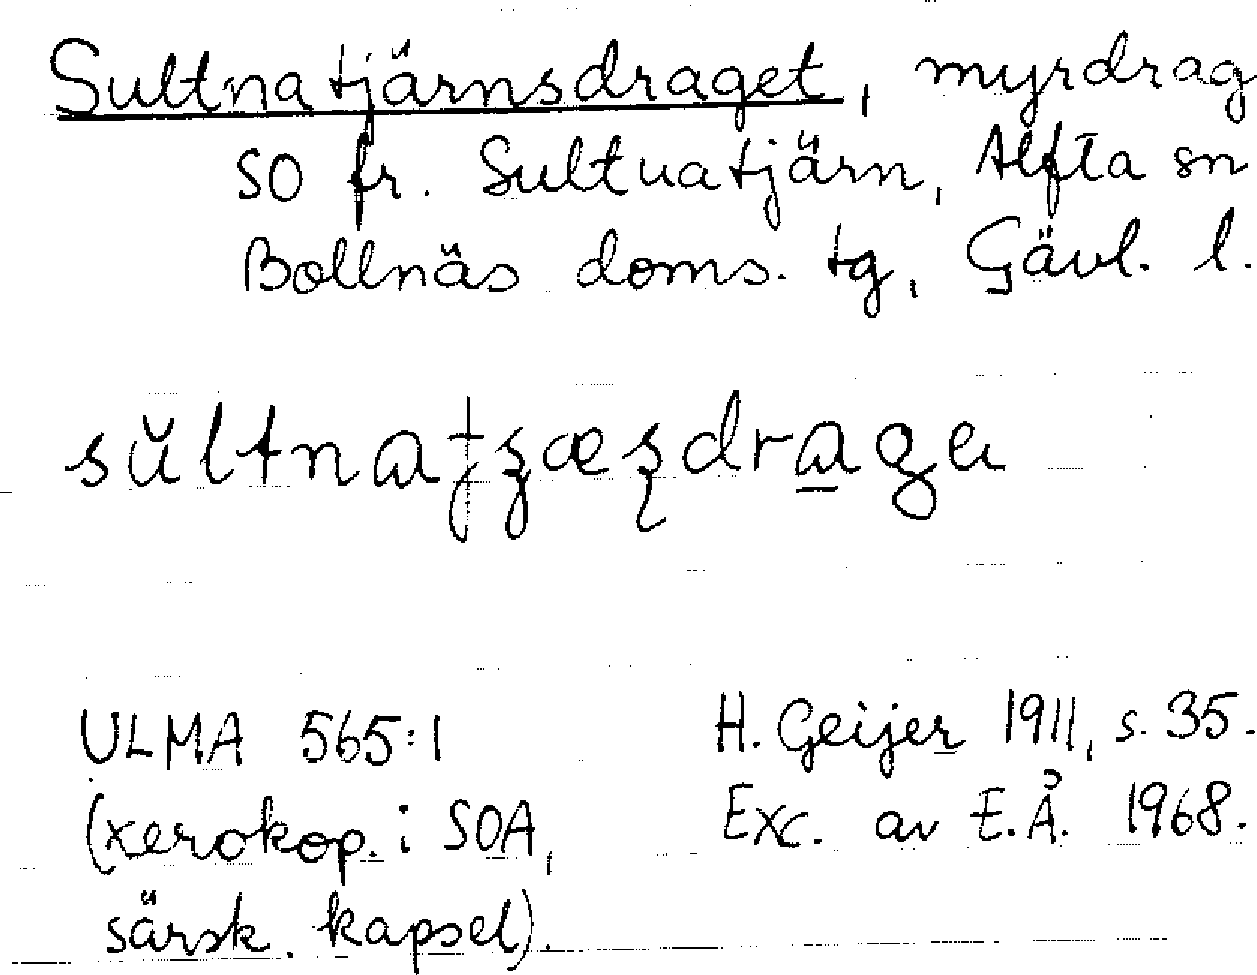 Sultnatjärnsdraget, myrdrag
SO fr. Sultnatjärn, Alfta sn
Bollnäs doms. tg, Gävl. l.
ULMA 565:1
(xerokop. i SOA,
särsk. kapsel).
H. Geijer 1911, s. 35.
Exc. av E.Å. 1968.